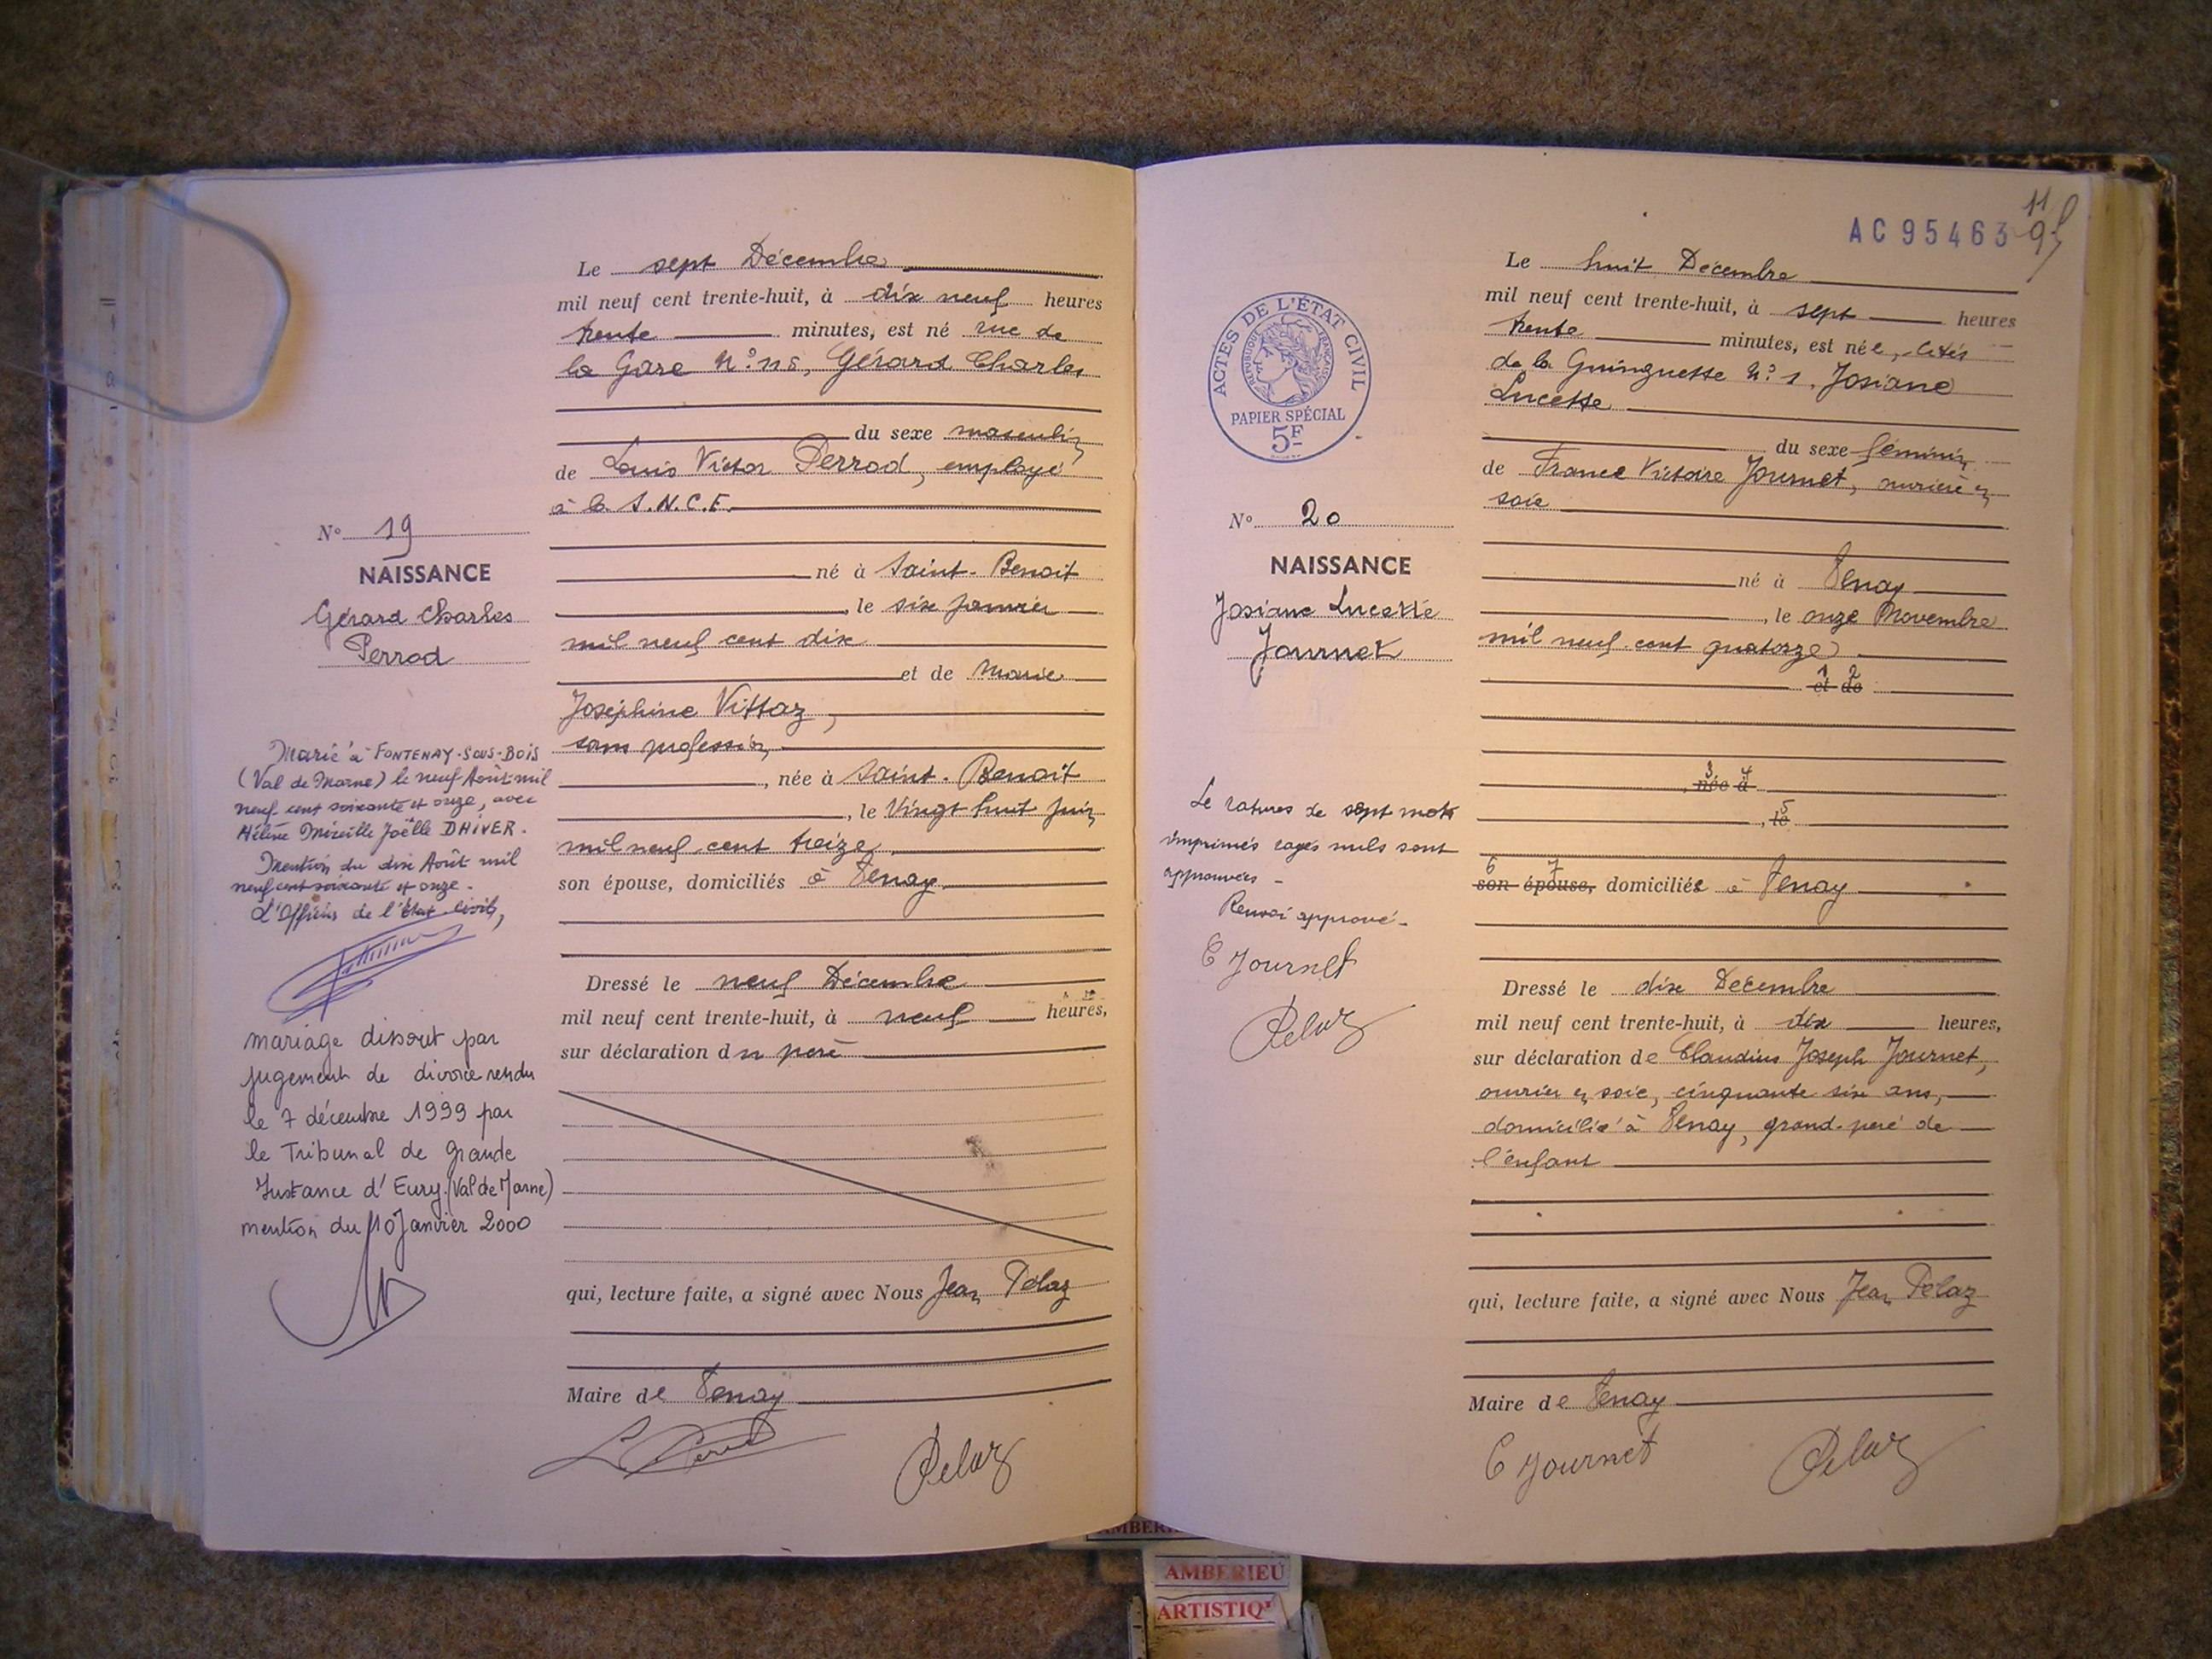 Le sept Décembre
mil neuf cent trente-huit, à dix neuf heures
trente minutes, est né rue de
la Gare N°, Gérard Charles
du sexe masculin
de Louis Victor Perrod, employé
à la S.N.C.F.
N° 19
NAISSANCE
Gérard Charles
Perrod
né à Saint-Benoit
, le six janvier
mil neuf cent dix
et de Marie
Joséphine Vittoz,
sans profession,
, née à Saint-Benoit
, le Vingt huit juin
mil neuf cent treize,
son épouse, domiciliés à Tenay.
Marié à FONTENAY-SOUS-BOIS
(Val de Marne) le neuf Août mil
neuf cent soixante et onze, avec
Hélène Mireille Joëlle DHIVER.
Mention du dix Août mil
neuf cent soixante et onze.
L'Officier de l'état civil,
mariage dissout par
jugement de divorce rendu
le 7 décembre 1999 par
le Tribunal de Grande
Instance d' (Val de Marne)
mention du 10 Janvier 2000
Dressé le neuf Décembre
mil neuf cent trente-huit, à neuf heures,
sur déclaration du père
qui, lecture faite, a signé avec Nous Jean Pelaz
Maire de Tenay
Pelaz
AC 95463
11
ACTES DE L'ÉTAT CIVIL
RÉPUBLIQUE FRANÇAISE
PAPIER SPÉCIAL
5F
Le huit Décembre
mil neuf cent trente-huit, à sept heures
trente minutes, est née, cités
de la Guinguette N° 1, Josiane
Lucette
du sexe féminin
de France Victoire Journet, ouvrière en
soie
N° 20
NAISSANCE
Josiane Lucette
Journet
né à Tenay
, le onze Novembre
mil neuf cent quatorze
1 2
et de
3 4
, née à
5
, le
6 7
son épouse, domiciliée à Tenay
Le ratures de sept mots
imprimés rayés nuls sont
approuvées -
Renvoi approuvé -
C Journet
Pelaz
Dressé le dix Décembre
mil neuf cent trente-huit, à dix heures,
sur déclaration de Claudius Joseph Journet,
ouvrier en soie, cinquante six ans,
domicilié à Tenay, grand-père de
l'enfant
qui, lecture faite, a signé avec Nous Jean Pelaz
Maire de Tenay
C Journet
Pelaz
AMBERIEU
ARTISTIQ